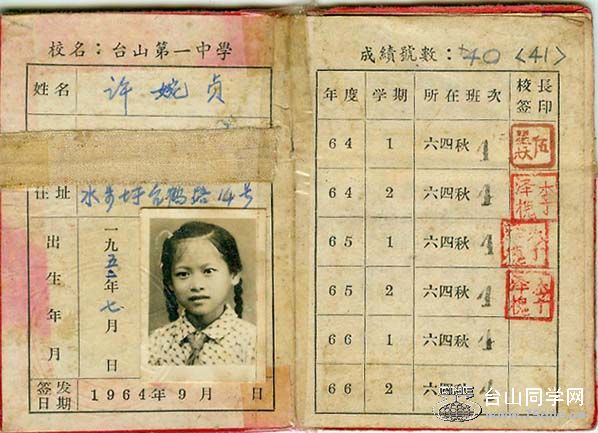 校名：台山第一中學
姓名 许婉贞
住址 水步圩台鹤路14号
出生年月 一九五二年七月 日
签发日期 1964年9月 日
成績號數：40〈41〉
年度 学期 所在班次 校長签印
64 1 六四秋 4
64 2 六四秋 4
65 1 六四秋 4
65 2 六四秋 4
66 1 六四秋 4
66 2 六四秋 4
台山同学网